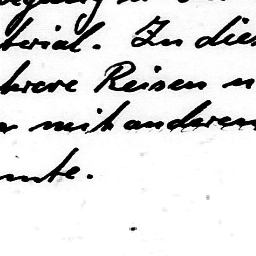 terial. Zu dies
hrere Reisen u
r mit anderen
nnte.